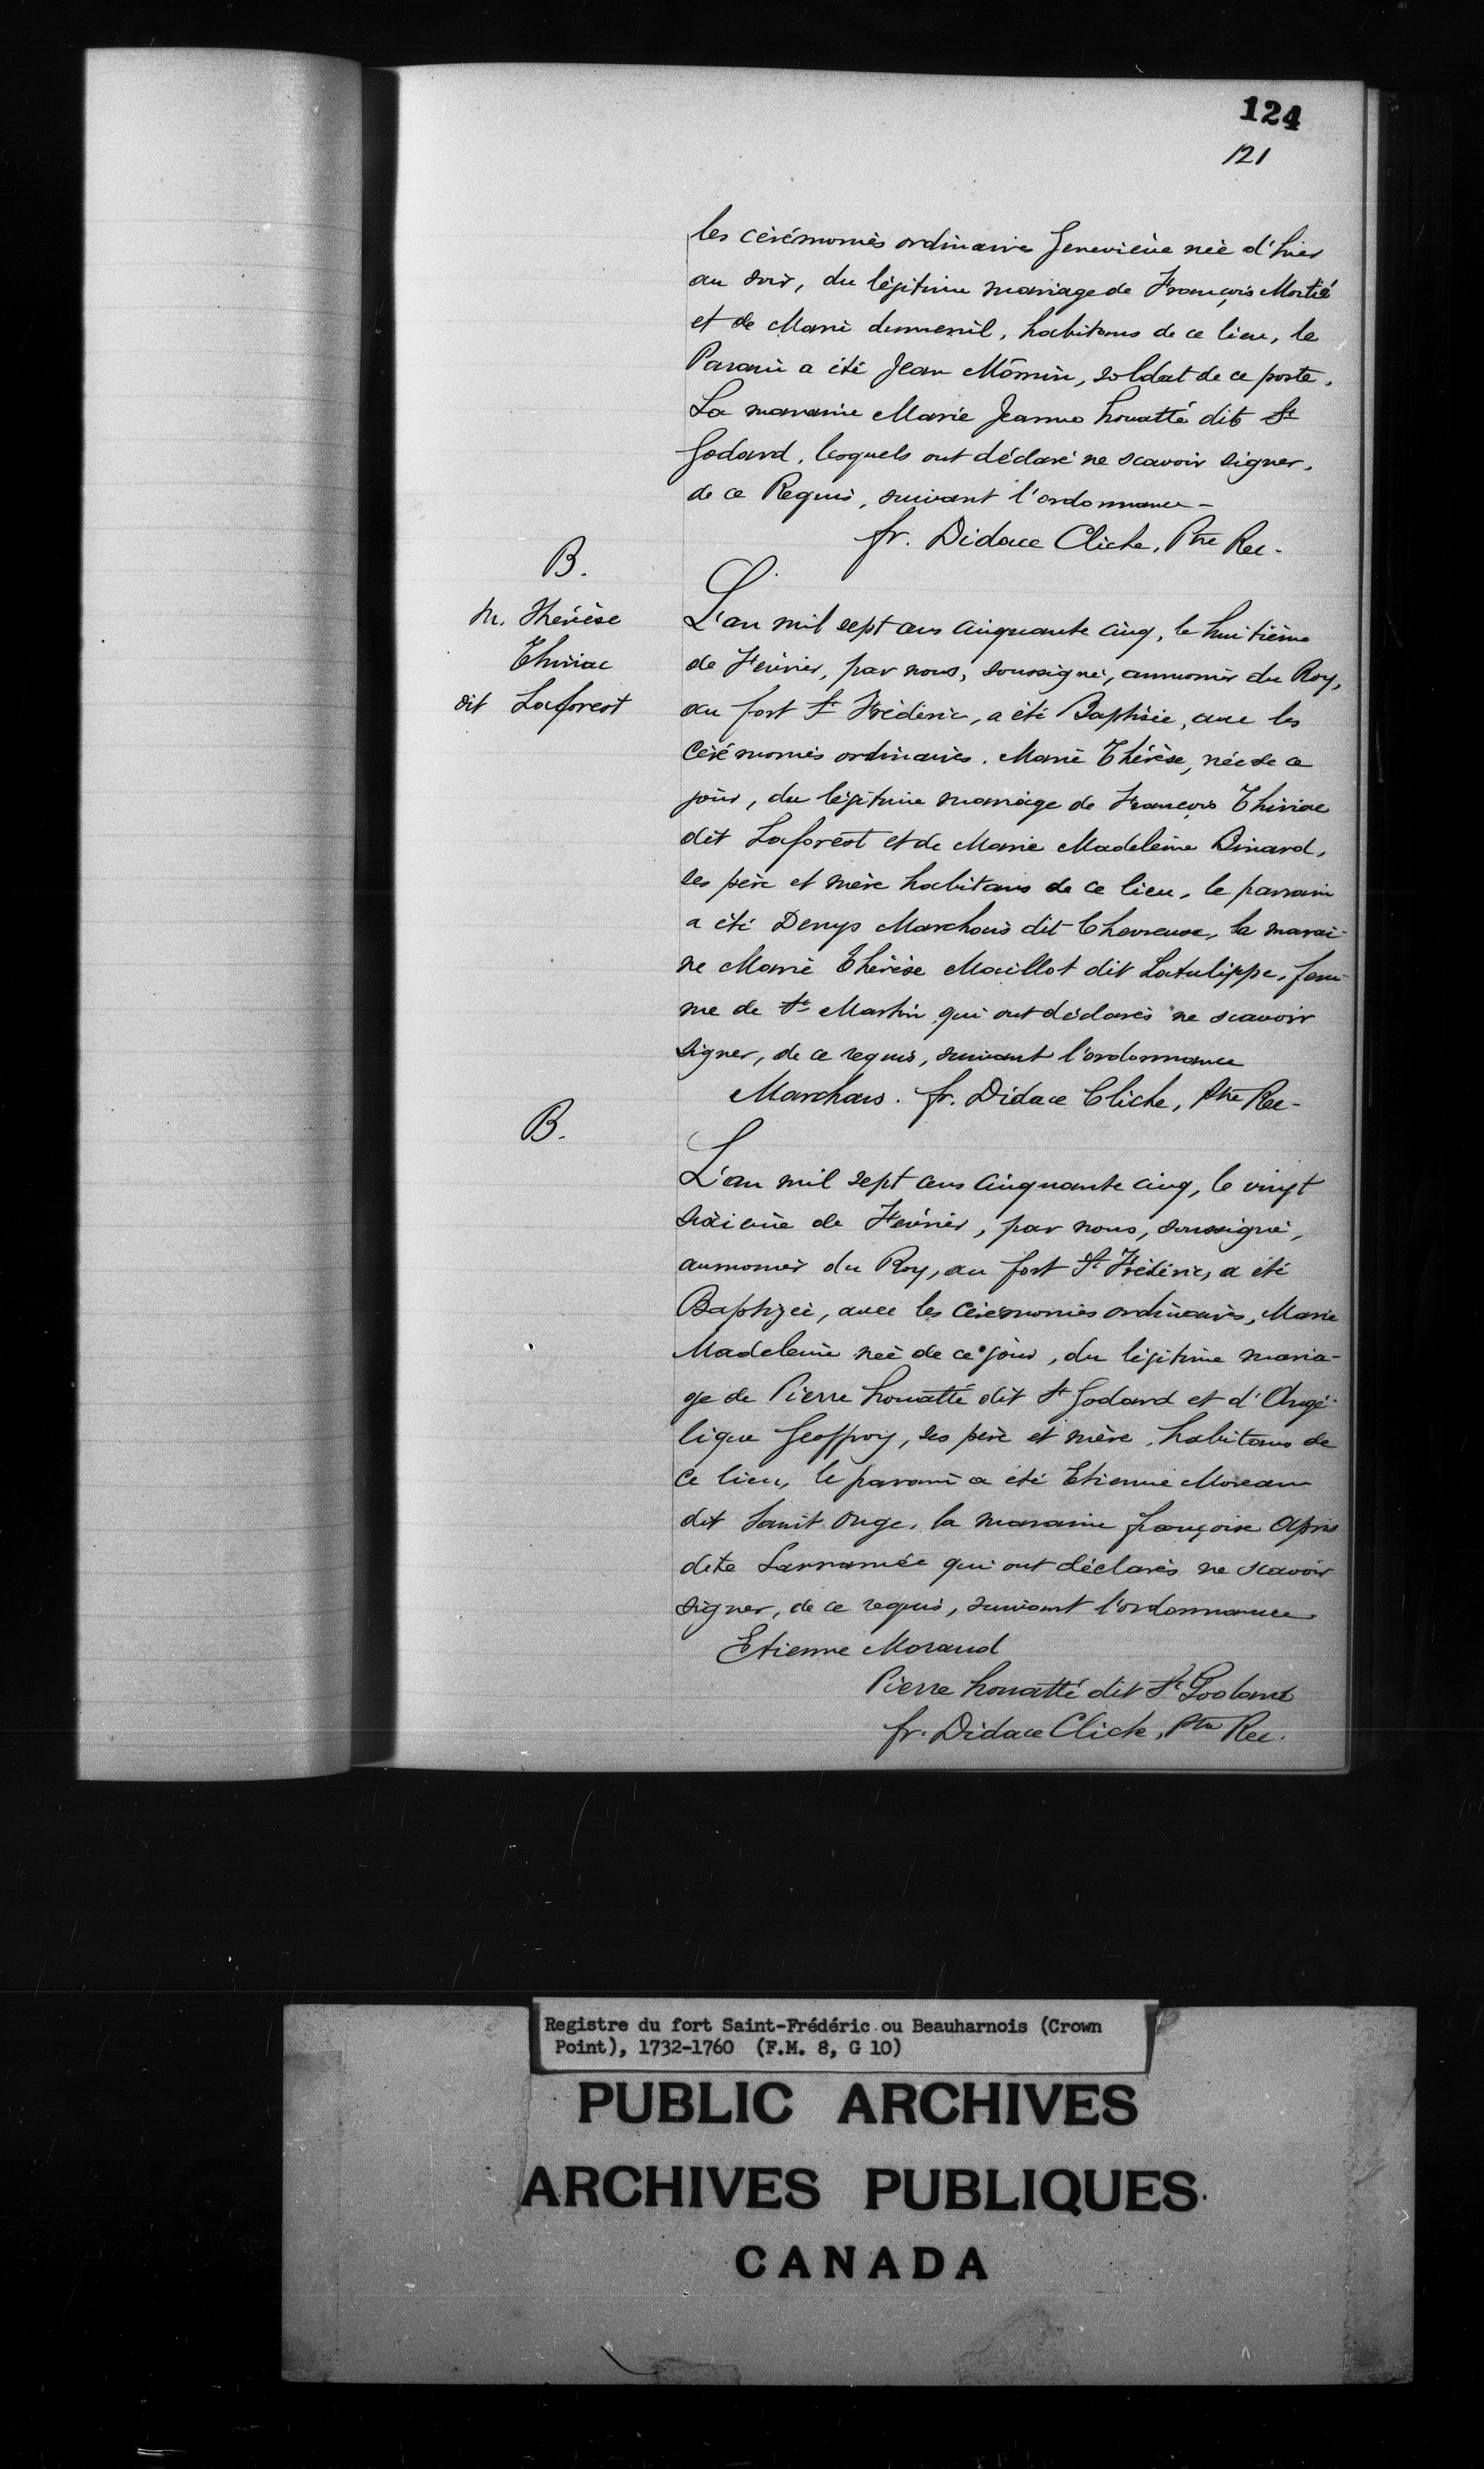 124
121
les cérémonies ordinaires Geneviève née d'hier
au soir, du légitime mariage de François Mortié
et de Marie dumenil, habitans de ce lieu, le
Parain a été Jean Mômin, soldat de ce poste.
La maraine Marie Jeanne houatté dit St
Godard, lesquels ont déclaré ne scavoir signer,
de ce Requis, suivant l'ordonnance -
fr. Didace Cliche, Ptre Rec.
B.
M. Thérèse
Thiriac
dit Laforest
L'an mil sept cens cinquante cinq, le huitième
de Février, par nous, soussigné, aumonier du Roy,
au fort St Frédéric, a été Baptisée, avec les
Cérémonies ordinaires. Marie Thérèse, née de ce
jour, du légitime mariage de François Thiriac
dit Laforest et de Marie Madeleine Binard,
ses père et mère habitans de ce lieu, le parrain
a été Denys Marchais dit Chevreuse, la marai-
ne Marie Thérèse Maillot dit Latulippe, fem-
me de St Martin qui ont déclarés ne scavoir
signer, de ce requis, suivant l'ordonnance
Marchais. fr. Didace Cliche, Ptre Rec-
B.
L'an mil sept cens cinquante cinq, le vingt
sixième de Février, par nous, soussigné,
aumonier du Roy, au fort St Frédéric, a été
Baptizée, avec les Cérémonies ordinaires, Marie
Madeleine née de ce jour, du légitime maria-
ge de Pierre houatté dit St Godard et d'Angé-
lique Geoffroy, ses père et mère, habitans de
ce lieu, le parain a été Etienne Moreau
dit Saint Onge, la maraine françoise Apris
dite Larramée qui ont déclarés ne scavoir
signer, de ce requis, suivant l'ordonnance
Etienne Moraud
Pierre houatté dit St Godard
fr. Didace Cliche, Ptre Rec.
Registre du fort Saint-Frédéric ou Beauharnois (Crown
Point), 1732-1760 (F.M. 8, G 10)
PUBLIC ARCHIVES
ARCHIVES PUBLIQUES
CANADA